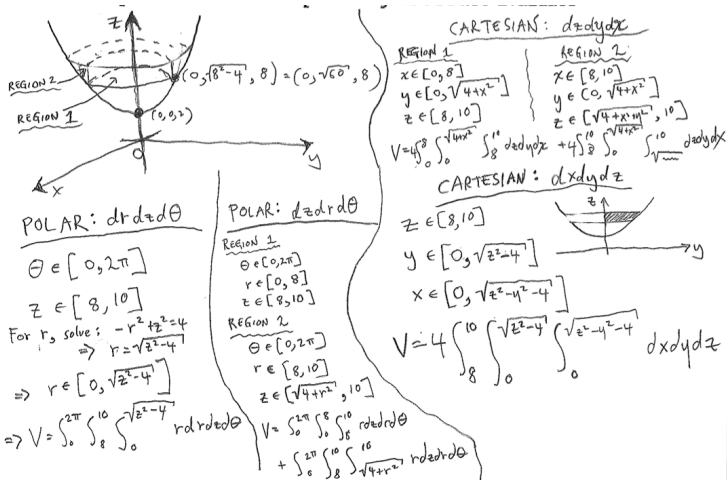 z
REGION 2
REGION 1
(0,√8²-4, 8) = (0,√60, 8)
(0,0,2)
0
x
y
POLAR: drdzdθ
θ ∈ [0,2π]
z ∈ [8,10]
For r, solve: -r²+z²=4
=> r=√z²-4
=> r∈[0,√z²-4]
=> V=∫₀^2π ∫₈^10 ∫₀^√z²-4 rdrdzdθ
POLAR: dzdrdθ
REGION 1
θ∈[0,2π]
r∈[0,8]
z∈[8,10]
REGION 2
θ∈[0,2π]
r∈[8,10]
z∈[√4+r², 10]
V=∫₀^2π ∫₀^8 ∫₈^10 rdzdrdθ
+ ∫₀^2π ∫₈^10 ∫_√4+r²^10 rdzdrdθ
CARTESIAN: dzdydx
REGION 1
x∈[0,8]
y∈[0,√4+x²]
z∈[8,10]
REGION 2
x∈[8,10]
y∈[0,√4+x²]
z∈[√4+x²+y², 10]
V=4∫₀^8 ∫₀^√4+x² ∫₈^10 dzdydx + 4∫₈^10 ∫₀^√4+x² ∫_√^10 dzdydx
CARTESIAN: dxdydz
z∈[8,10]
y∈[0,√z²-4]
x∈[0,√z²-y²-4]
z
y
V=4∫₈^10 ∫₀^√z²-4 ∫₀^√z²-y²-4 dxdydz